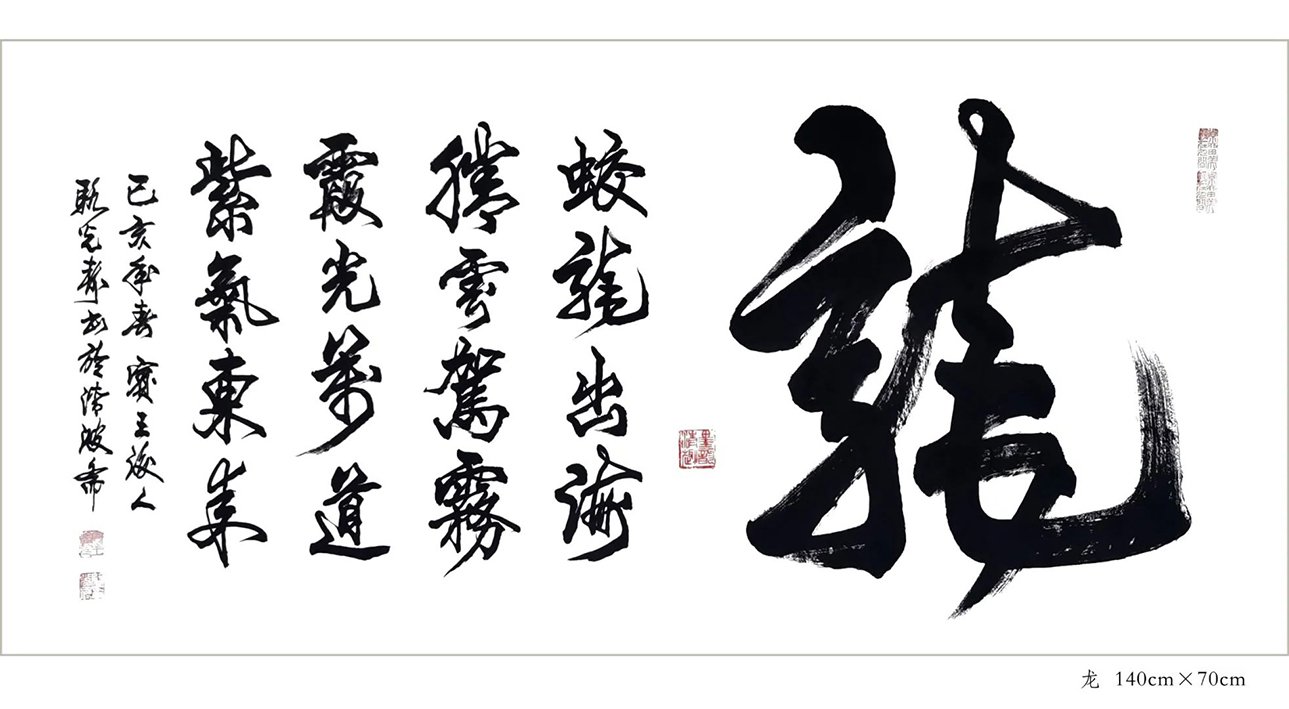 龍
蛟龍出海
騰雲駕霧
霞光萬道
紫氣東來
己亥年春 寶王後人
耿光靜書於清波齋
龙 140cm×70cm